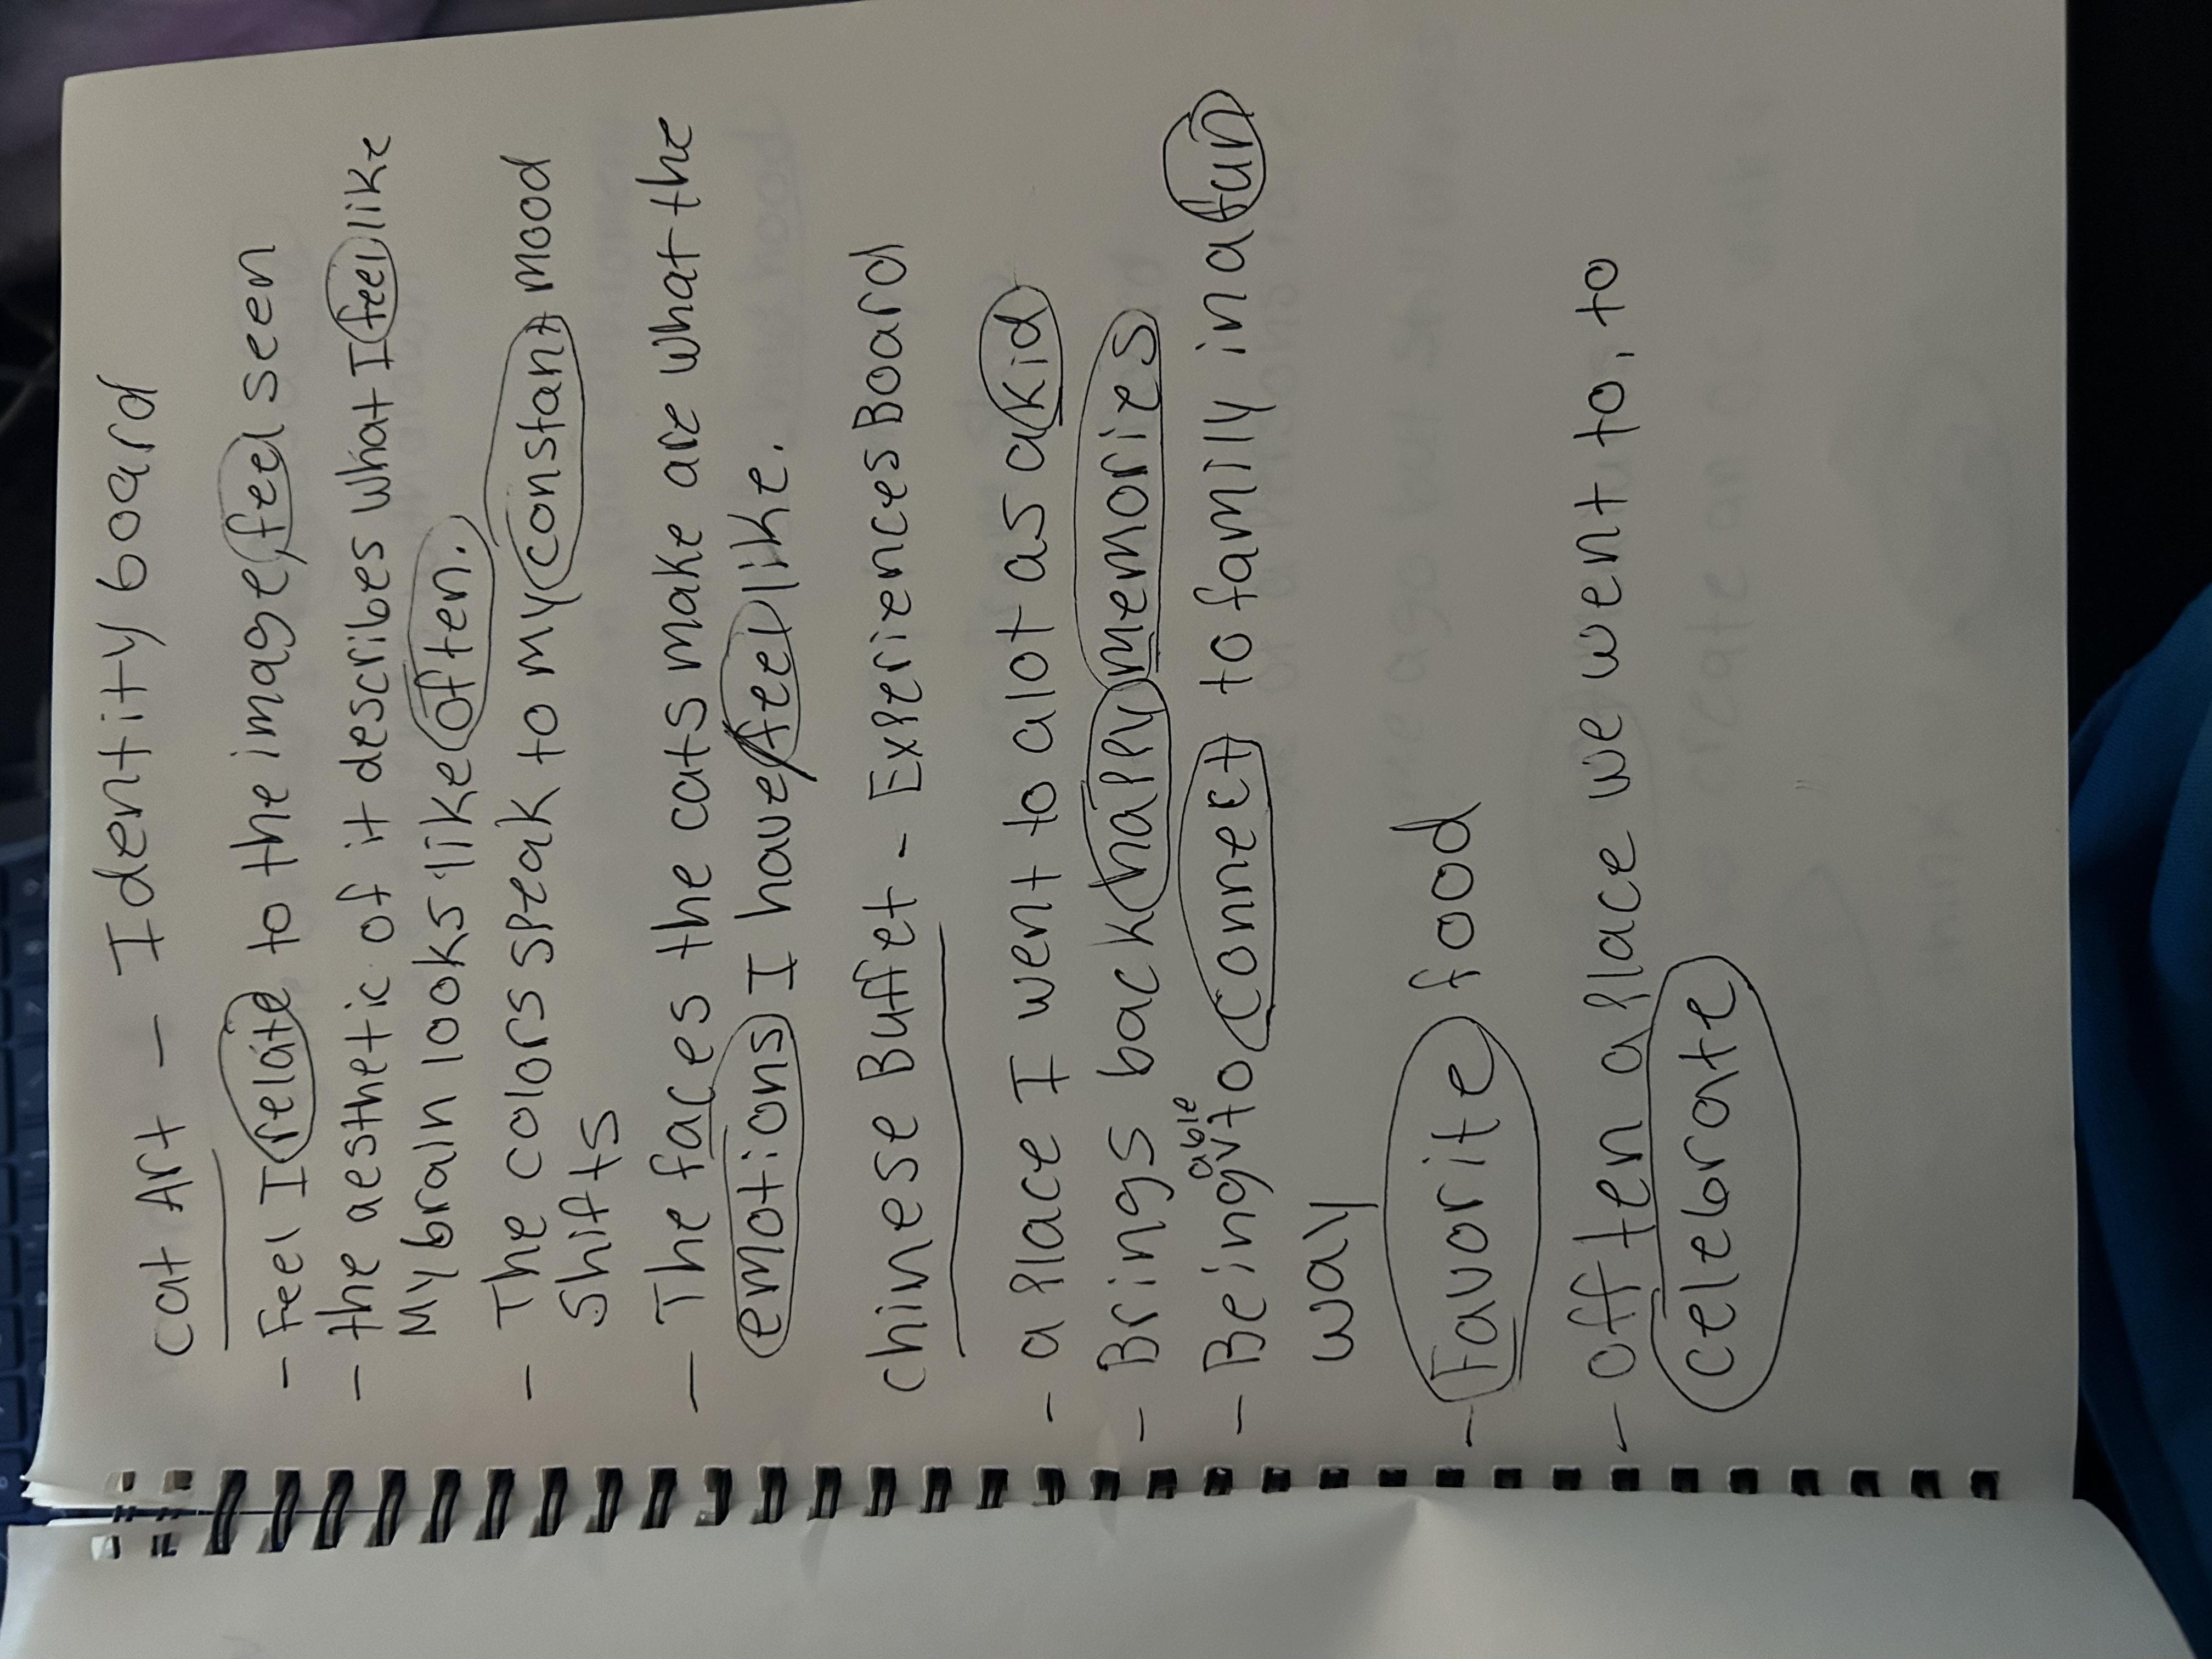 Cat Art - Identity board
- Feel I relate to the image, feel seen
- the aesthetic of it describes what I feel like
My brain looks like often.
- The colors speak to my constant mood
Shifts
- The faces the cats make are what the
emotions I have feel like.
Chinese Buffet - Experiences Board
- a place I went to alot as a kid
- Brings back happy memories
able
- Being to connect to family in a fun
way
- Favorite food
- often a place we went to, to
celebrate